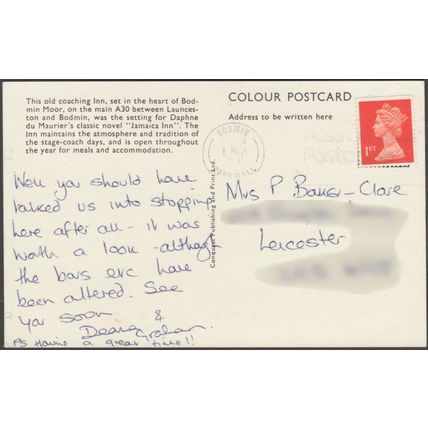 This old coaching Inn, set in the heart of Bod-
min Moor, on the main A30 between Launces-
ton and Bodmin, was the setting for Daphne
du Maurier's classic novel "Jamaica Inn". The
Inn maintains the atmosphere and tradition of
the stage-coach days, and is open throughout
the year for meals and accommodation.
Well you should have
talked us into stopping
here after all - it was
worth a look - although
the bars etc have
been altered. See
you soon
Deana & Graham.
PS Having a great time!!
Conquest Publishing and Print Ltd.
COLOUR POSTCARD
Address to be written here
BODMIN
CORNWALL
1ST
Mrs P Baker-Clare
Leicester